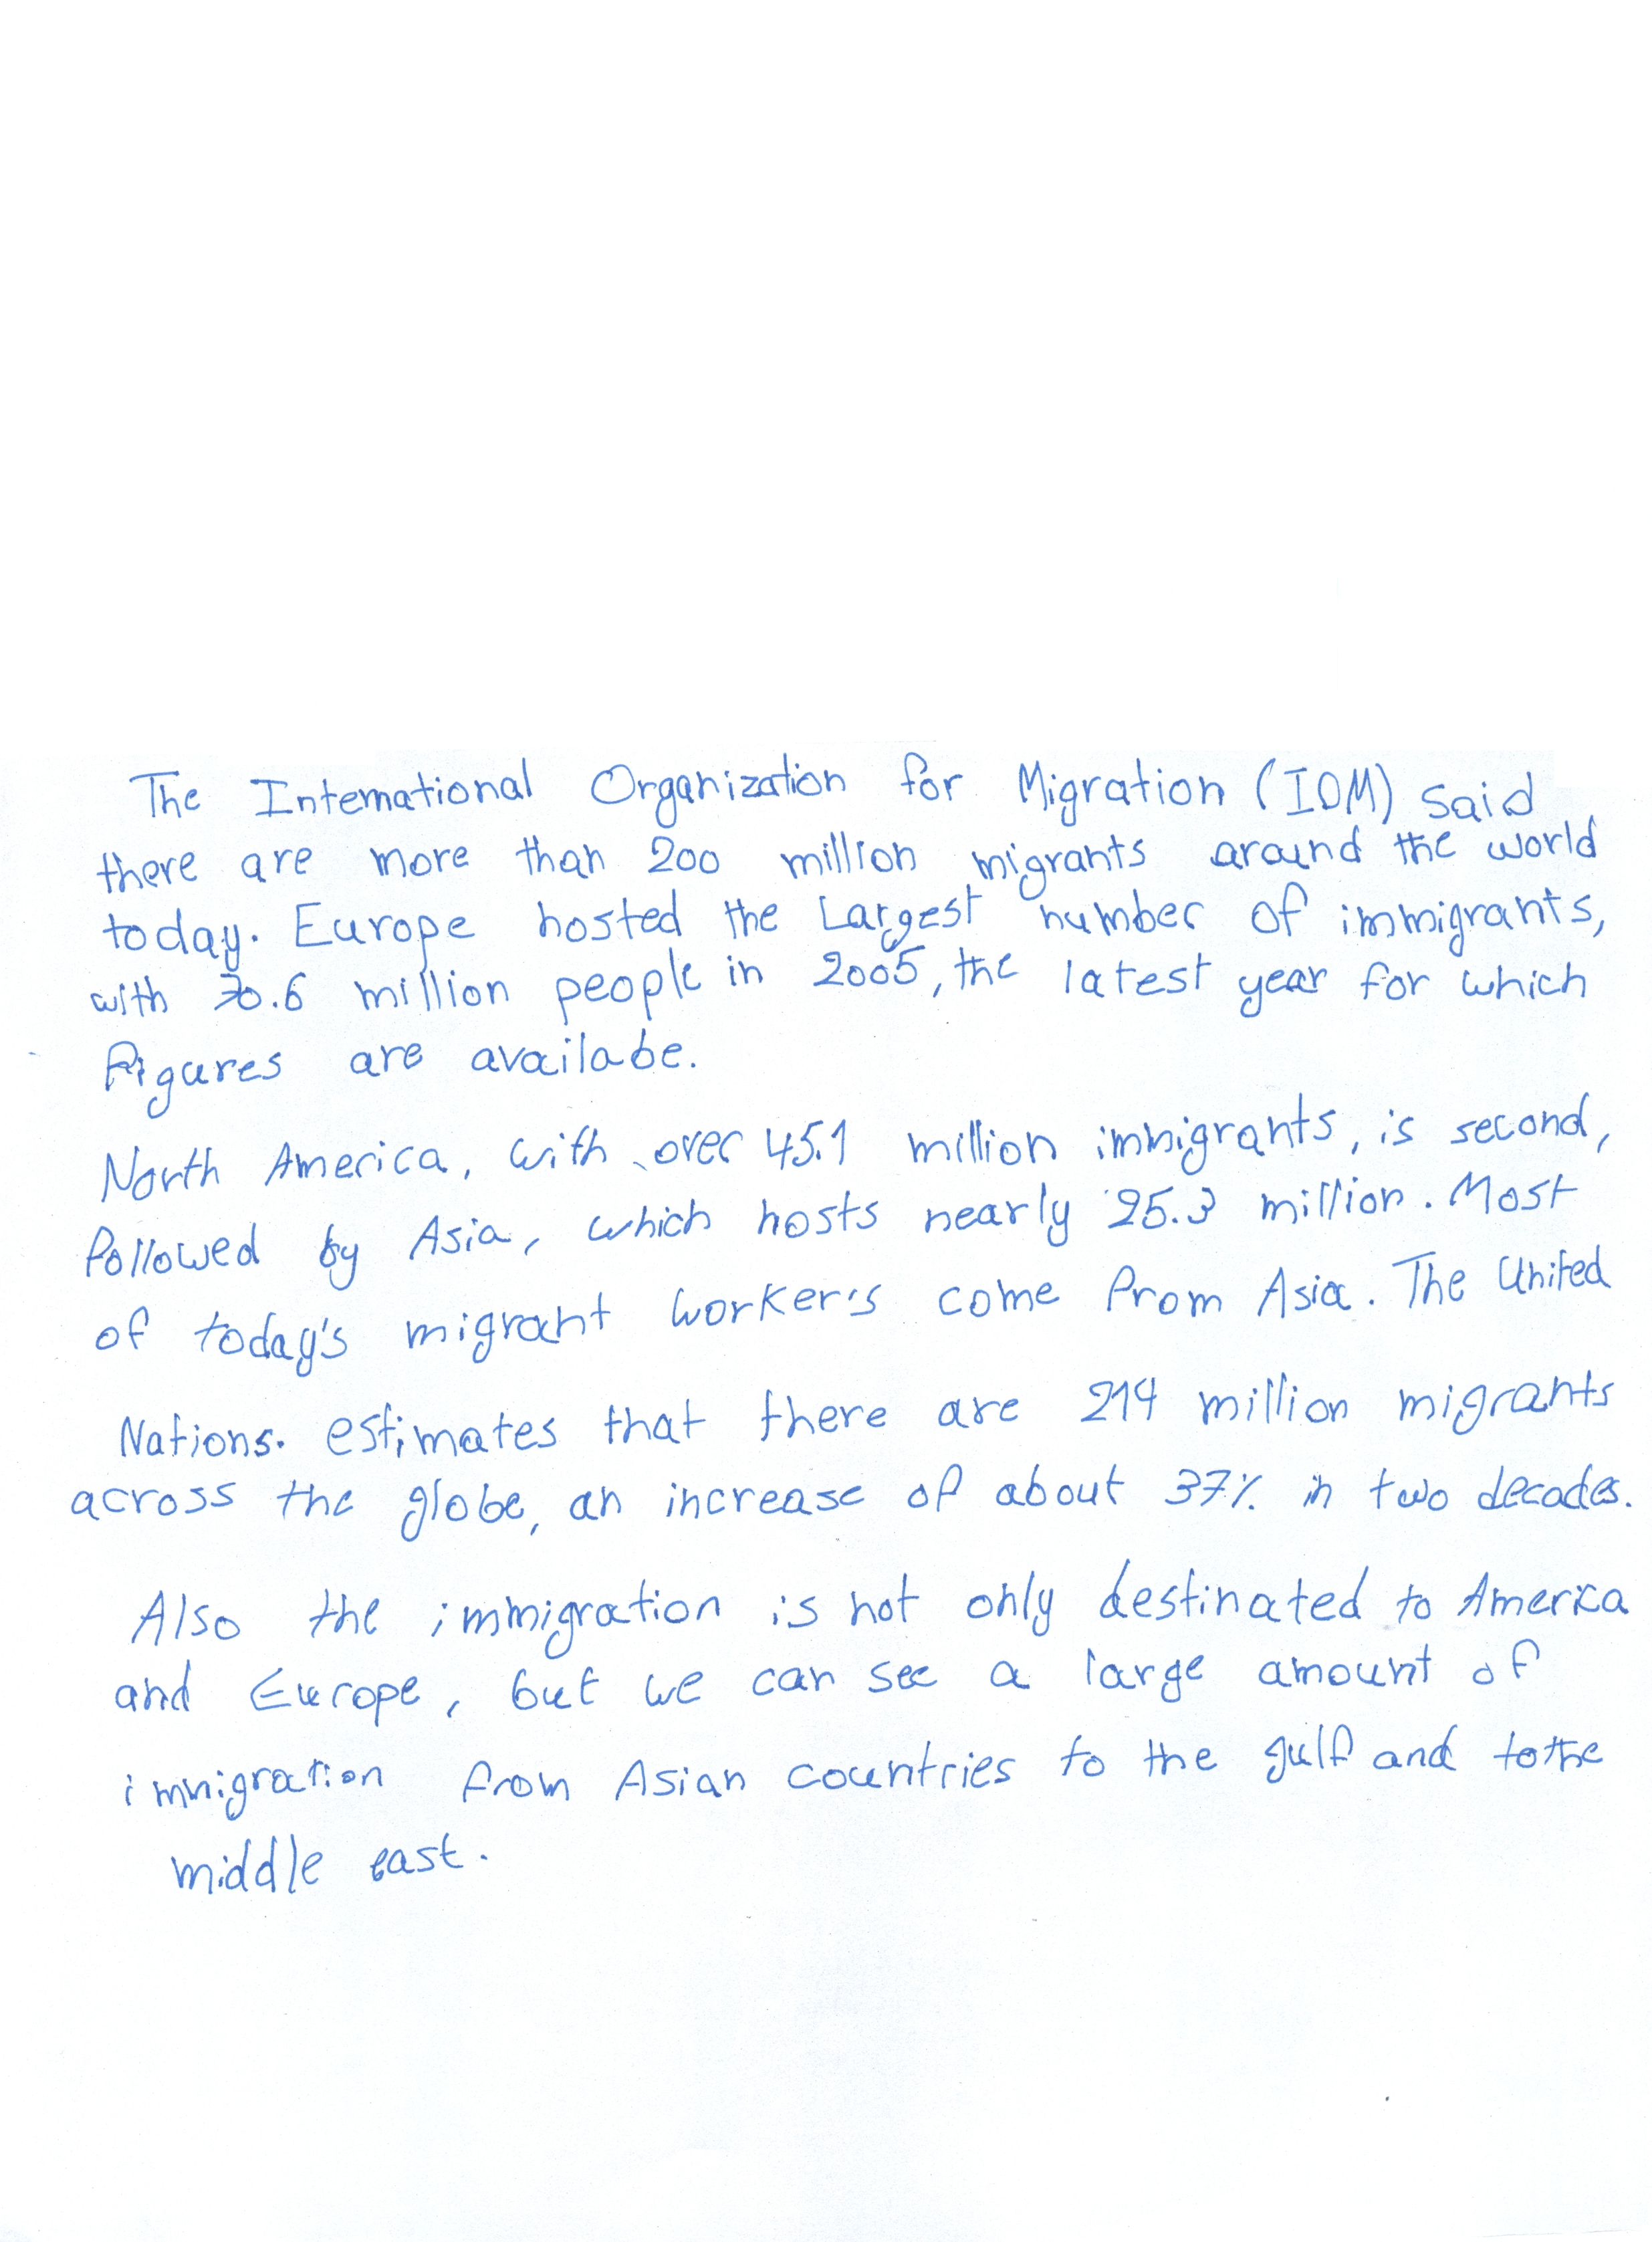 The International Organization for Migration (IOM) said
there are more than 200 million migrants around the world
today. Europe hosted the Largest number of immigrants,
with 70.6 million people in 2005, the latest year for which
figures are availabe.
North America, with over 45.1 million immigrants, is second,
followed by Asia, which hosts nearly 25.3 million. Most
of today's migrant worker's come from Asia. The United
Nations. estimates that there are 214 million migrants
across the globe, an increase of about 37% in two decades.
Also the immigration is not only destinated to America
and Europe, but we can see a large amount of
immigration from Asian countries to the gulf and to the
middle east.